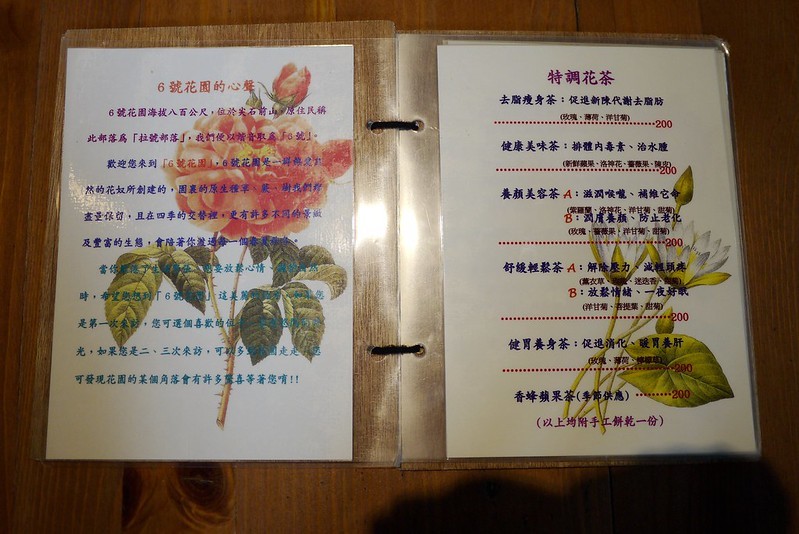 6號花園的心聲
6號花園海拔八百公尺，位於尖石前山，原住民稱
此部落為「拉號部落」，我們便以諧音取為「6號」。
歡迎您來到「6號花園」，6號花園是一群熱愛
然的花奴所創建的，園裏的原生種草、
盡量保留，且在四季的交替裡，更有許多不同的景緻
及豐富的生態，會陪著你渡過每一個
當你 放鬆心情
時，希望您想到「6號花園」這美麗
是第一次來訪，您可選個喜歡的位
光，如果您是二、三次來訪，可以多到花園走走，您
可發現花園的某個角落會有許多驚喜等著您唷!!
特調花茶
去脂瘦身茶：促進新陳代謝去脂肪
(玫瑰、薄荷、洋甘菊)
200
健康美味茶：排體內毒素、治水腫
(新鮮蘋果、洛神花、薔薇果、陳皮)
200
養顏美容茶 A：滋潤喉嚨、補維它命
(紫羅蘭、洛神花、洋甘菊、甜菊)
B：潤膚養顏、防止老化
(玫瑰、薔薇果、洋甘菊、甜菊)
200
舒緩輕鬆茶 A：解除壓力、減輕頭疼
(薰衣草、玫瑰、迷迭香、甜菊)
B：放鬆情緒、一夜好眠
(洋甘菊、菩提葉、甜菊)
200
健胃養身茶：促進消化、暖胃養肝
(玫瑰、薄荷、檸檬草)
200
香蜂蘋果茶(季節供應) 200
(以上均附手工餅乾一份)